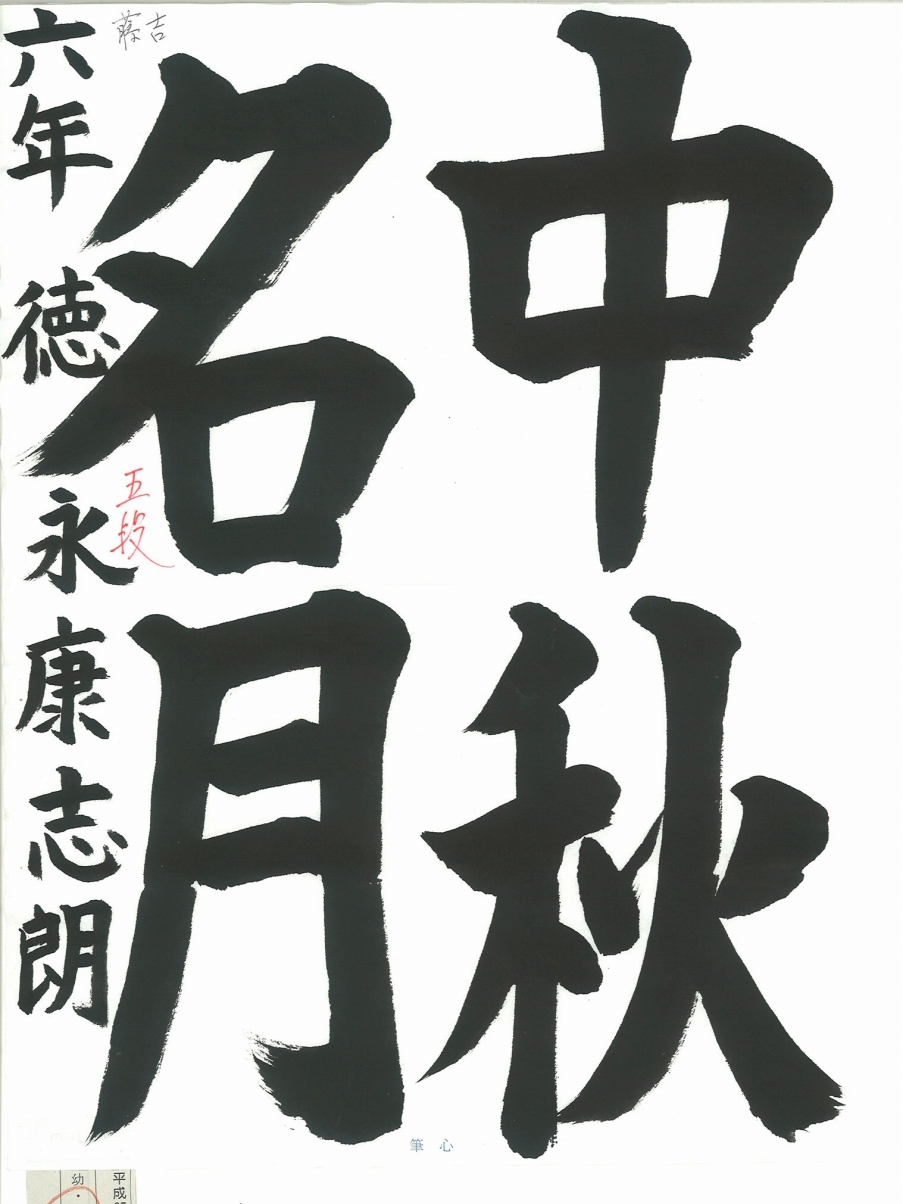 中秋
名月
六年 徳永康志朗
五段
藤吉
筆心
平成
幼・